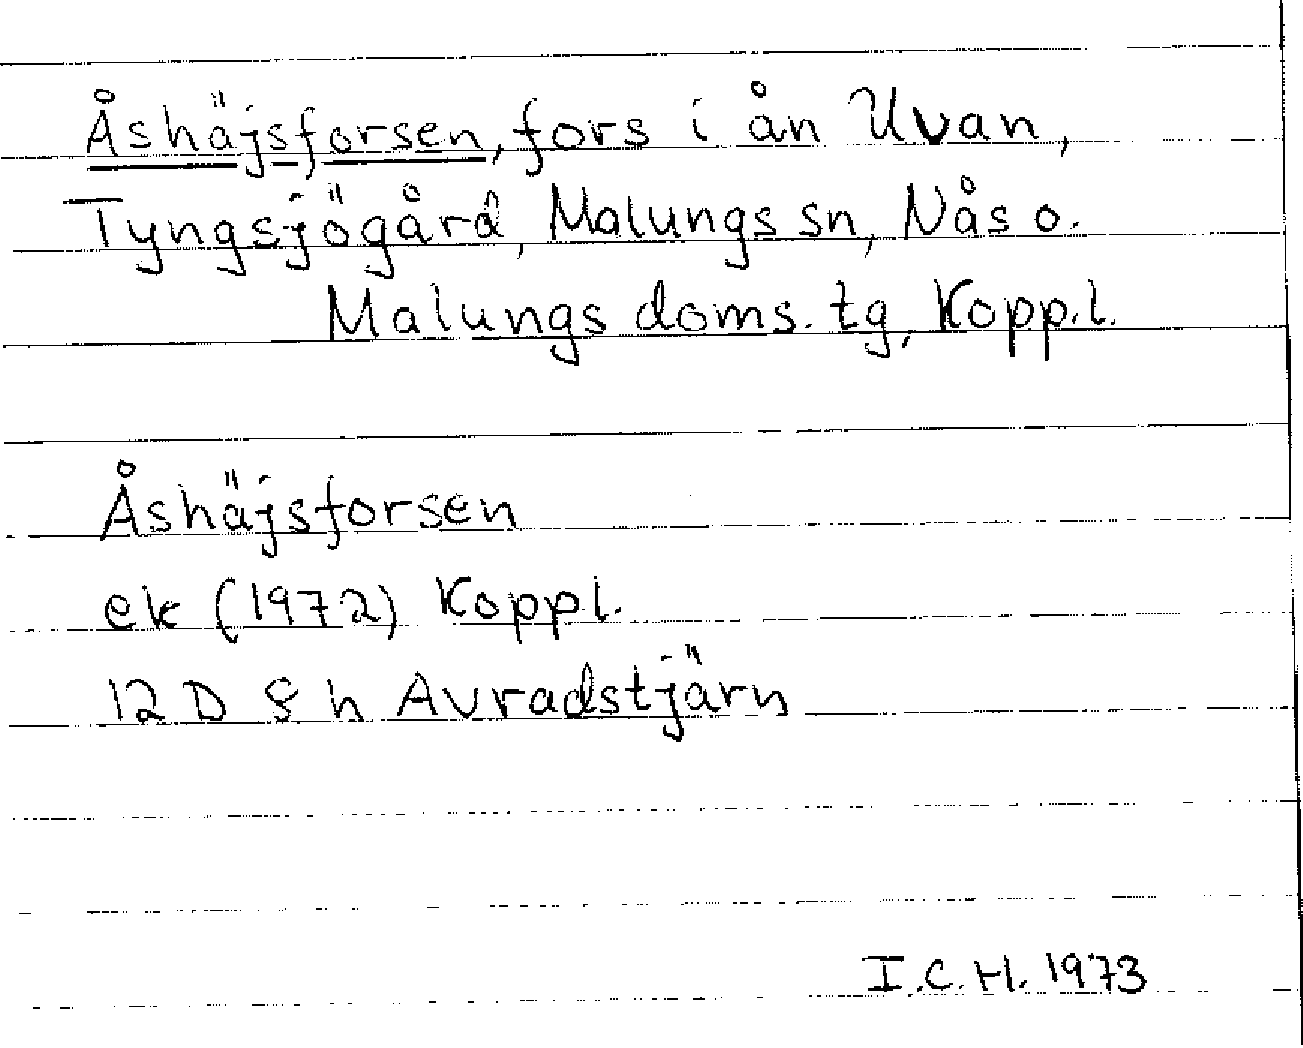 Åshäjsforsen, fors i ån Uvan,
Tyngsjögård, Malungs sn, Nås o.
Malungs doms. tg, Kopp.l.
Åshäjsforsen
ek (1972) Koppl.
12 D 8 h Avradstjärn
I.C.H. 1973